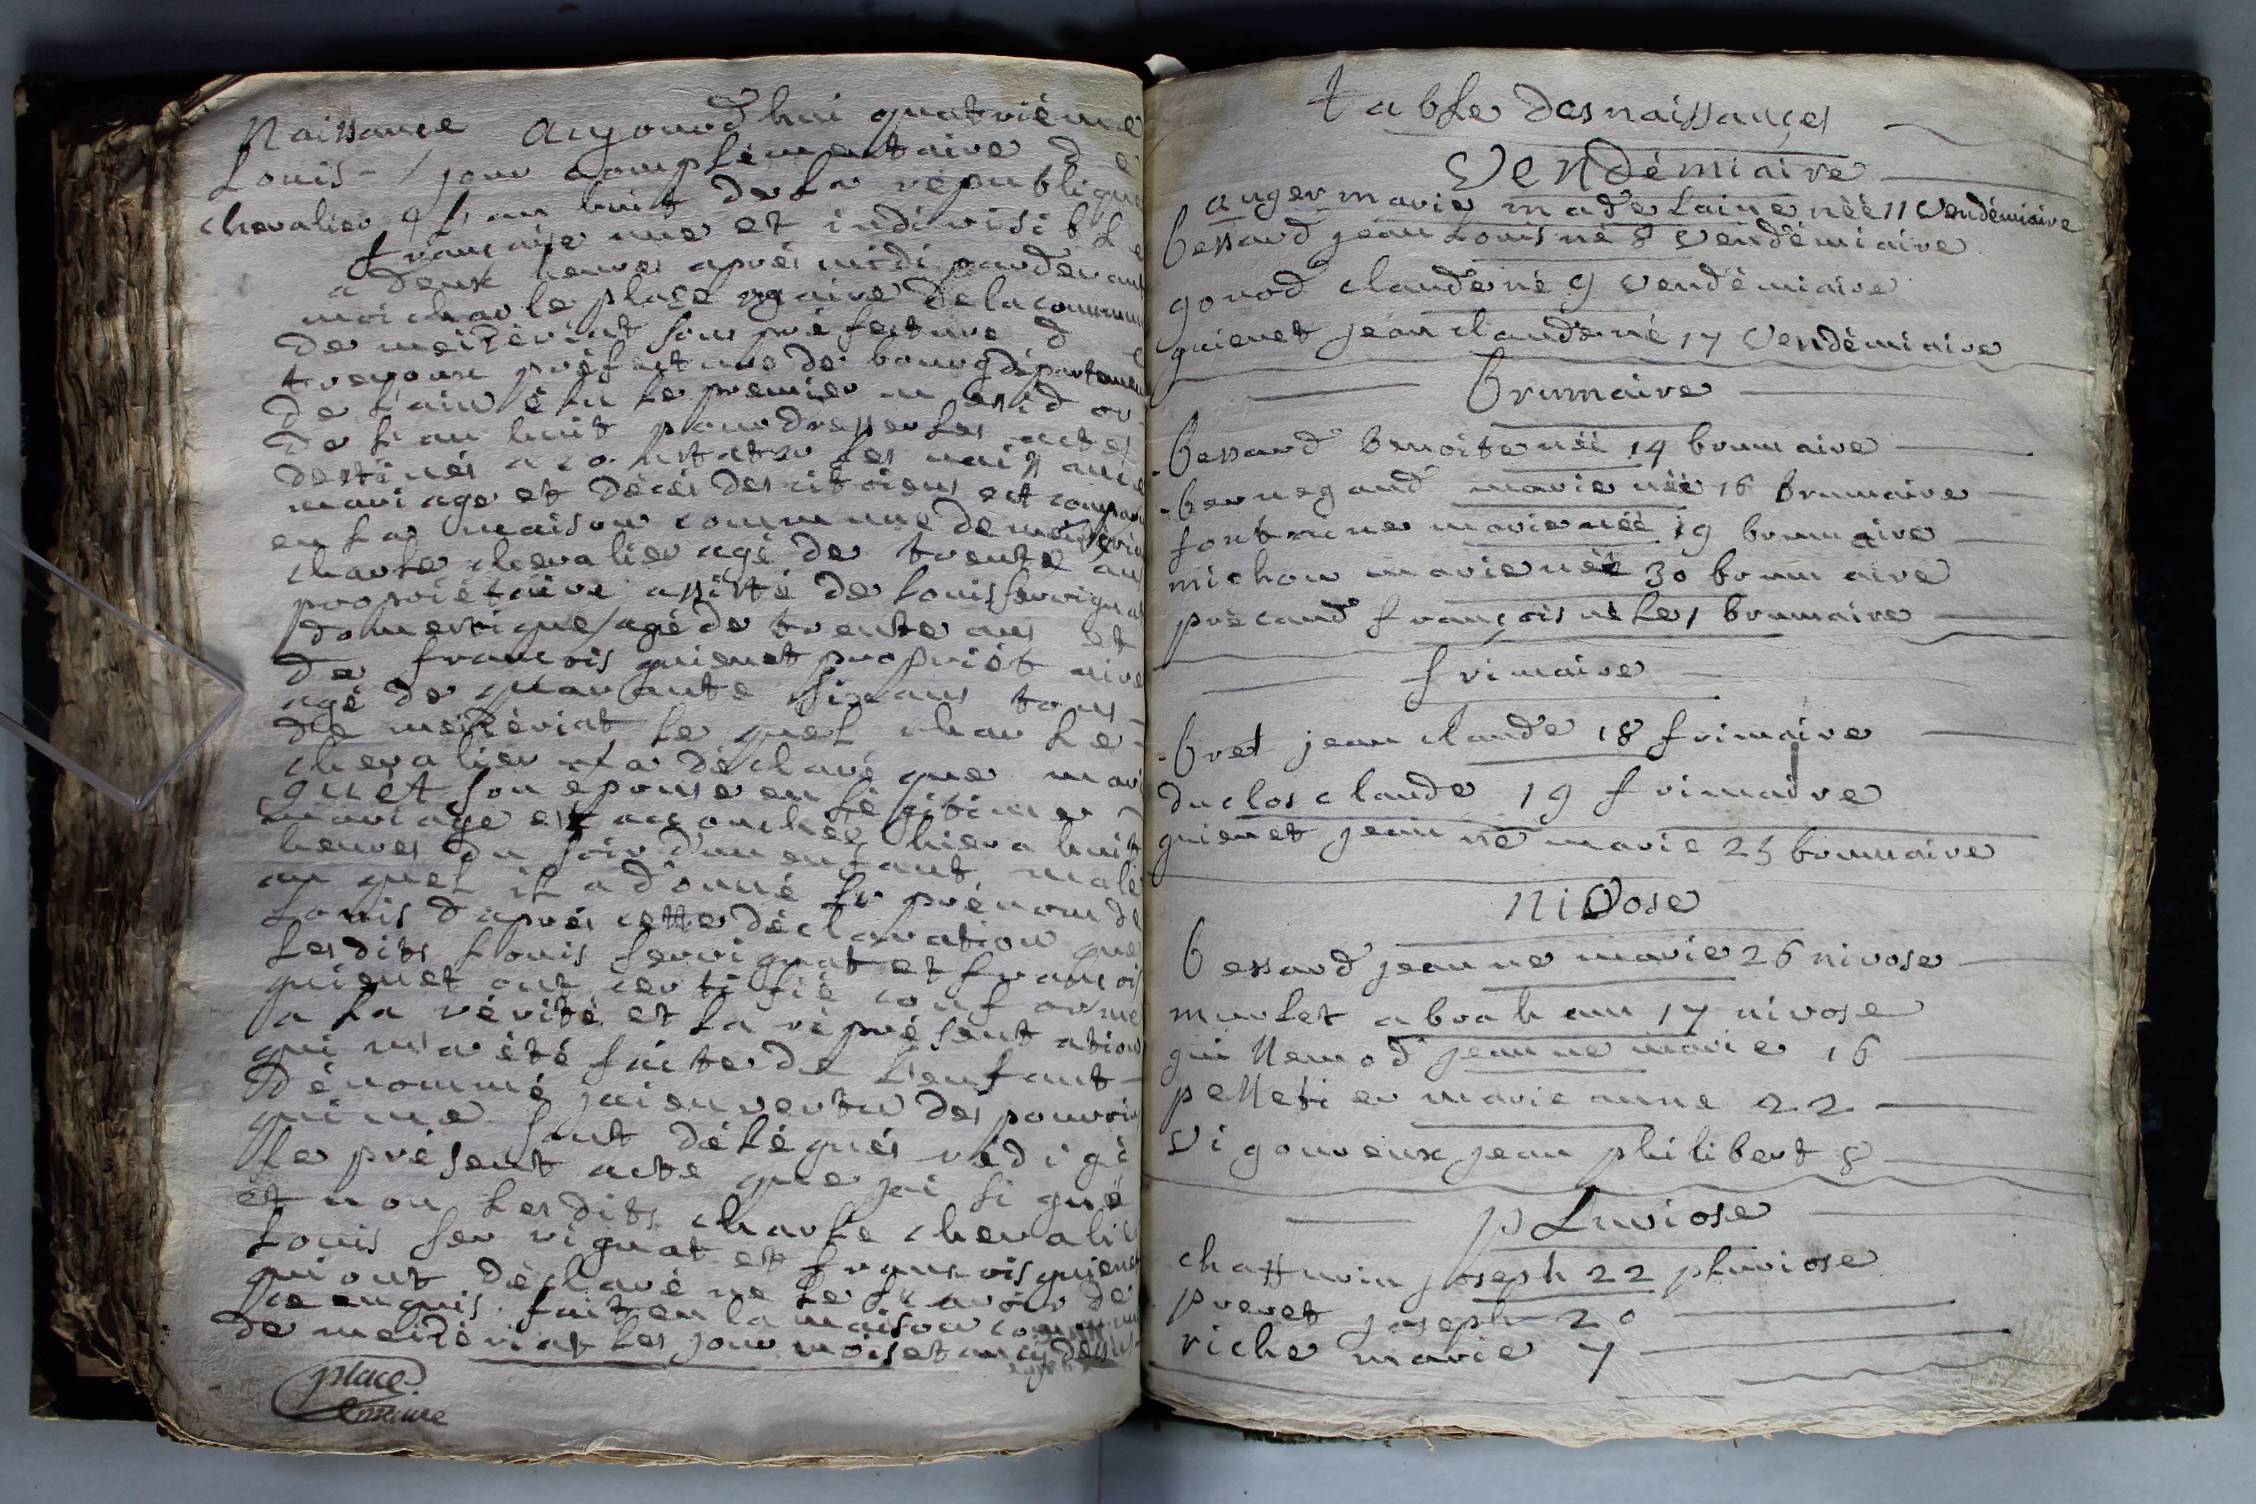 Naissance aujourd'hui quatriéme
Louis - jour complémentaire de
chevalier 4 L'an huit de La république
française une et indivisible
a deux heures aprés midi pardevant
moi charle place maire de la commune
de meizériat sous préfecture d
trevoux préfecture de bourg départemen
de L'ain élu le premier messidor
de L'an huit pour dresser Les actes
destinés a constater Les naissance
mariage et décés des citoiens est comparu
en La maison commune de meizeria
charle chevalier agé de trente ans
propriétaire assisté de Louis ferrignat
domestique agé de trente ans et
de françois guienet propriétaire
agé de quarante six ans tous -
de meizériat Le quel charle -
chevalier m'a déclaré que mari
guet son epouse en Légitime
mariage est acouchée hier a huit
heures du soir d'un enfant male
au quel il a donné Le prénom de
Louis d'aprés cette déclaration que
Lesdits Louis ferrignat et françois
guienet ont certifié conforme
a La vérité et La représentation
qui m'a été faite de L'enfant -
dénommé jai en vertu des pouvoir
qui me sont délégués rédigé
Le présent acte que jai signé
et non Lesdits charle chevalie
Louis ferrignat et françois guienet
qui ont déclaré ne Le scavoir de
ce enquis. fait en la maison commune
de meizériat Les jour mois et an cy dessus
place
maire
table des naissances
vendémiaire
auger marie madelaine néé 11 vendémiaire
bessard jean Louis né 8 vendémiaire
gonod claude né 9 vendémiaire
guienet jean claude né 17 vendémiaire
brumaire
bessard benoite néé 14 brumaire
bernegaud marie néé 16 brumaire
fontaine marie néé 19 brumaire
michon marie néé 30 brumaire
précaud françois né Le 1 brumaire
frimaire
bret jean claude 18 frimaire
duclos claude 19 frimaire
guienet jeanne marie 25 brumaire
nivose
bessard jeanne marie 26 nivose
murlet abraham 17 nivose
guillemod jeanne marie 16
pelletier marie anne 22
vigoureux jean philibert 8
pluviose
chatturin joseph 22 pluviose
prevet joseph 20
riche marie 7